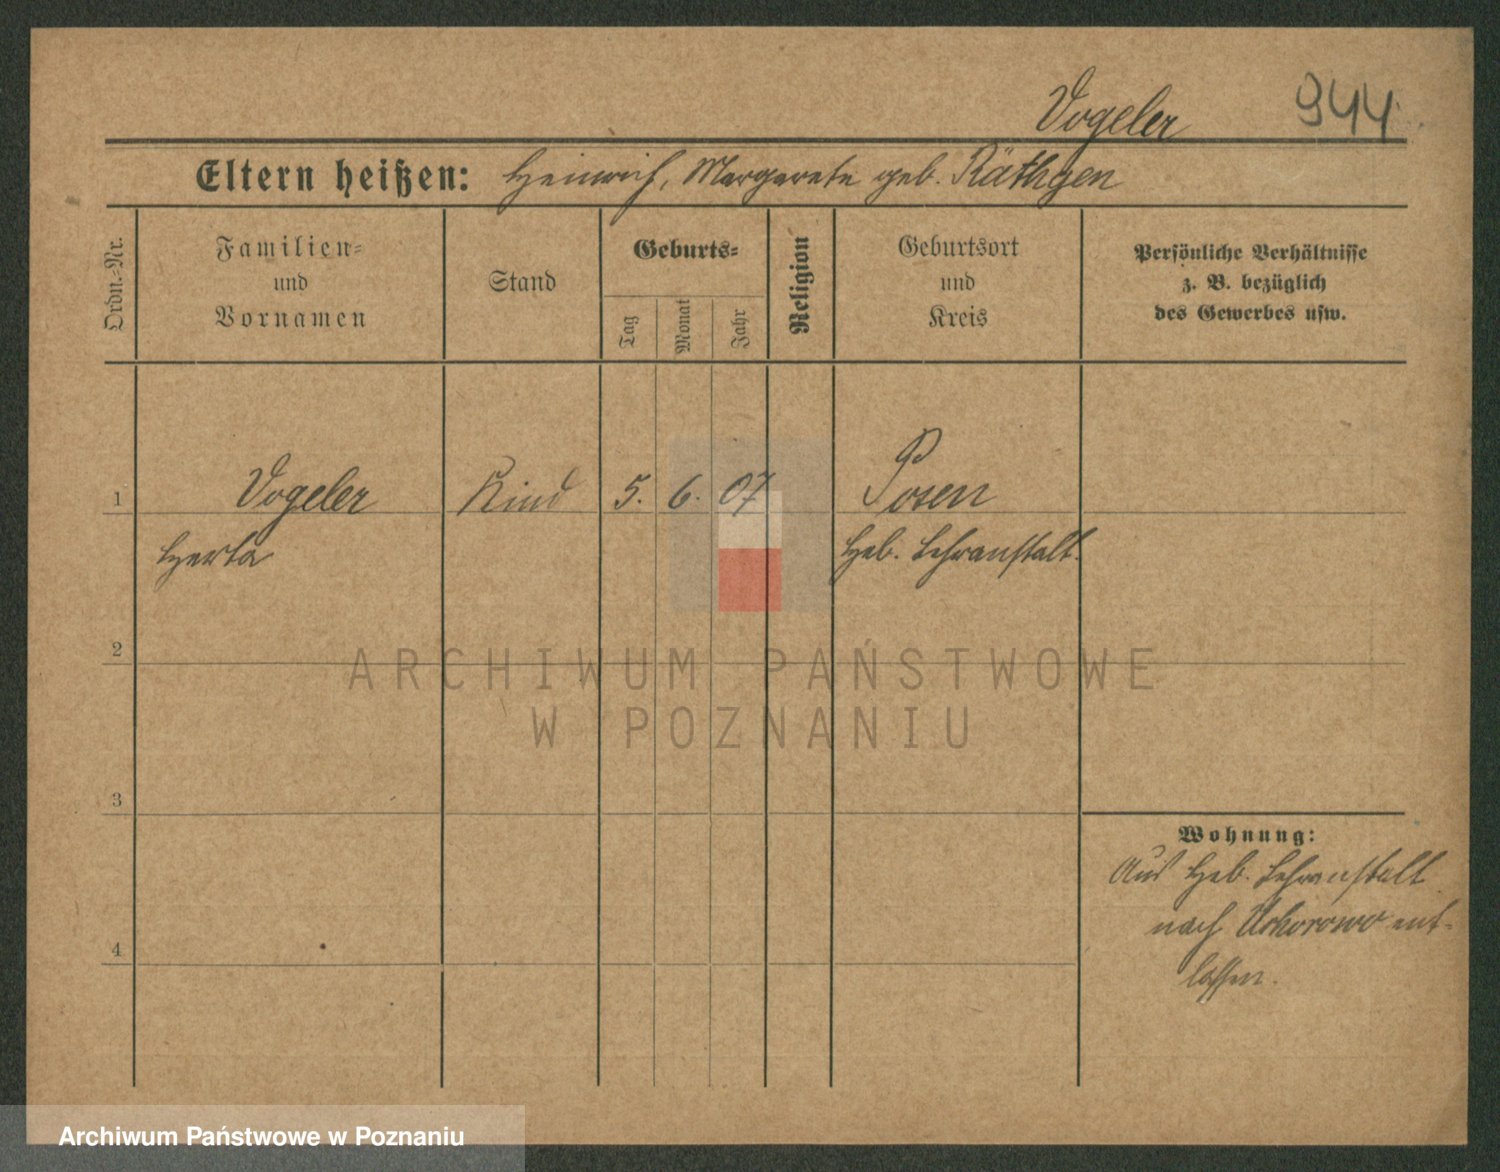 Vogeler 944
Eltern heißen: Heinrich, Margarete geb. Räthgen
Ordn.-Nr.
Familien-
und
Vornamen
Stand
Geburts-
Tag
Monat
Jahr
Religion
Geburtsort
und
Kreis
Persönliche Verhältnisse
z. B. bezüglich
des Gewerbes usw.
1 Vogeler Kind 5. 6. 07 Posen
Herta Heb. Lehranstalt.
2
ARCHIWUM PAŃSTWOWE
W POZNANIU
3
Wohnung:
Aus Heb. Lehranstalt
nach Uchorowo ent-
lassen.
4
Archiwum Państwowe w Poznaniu